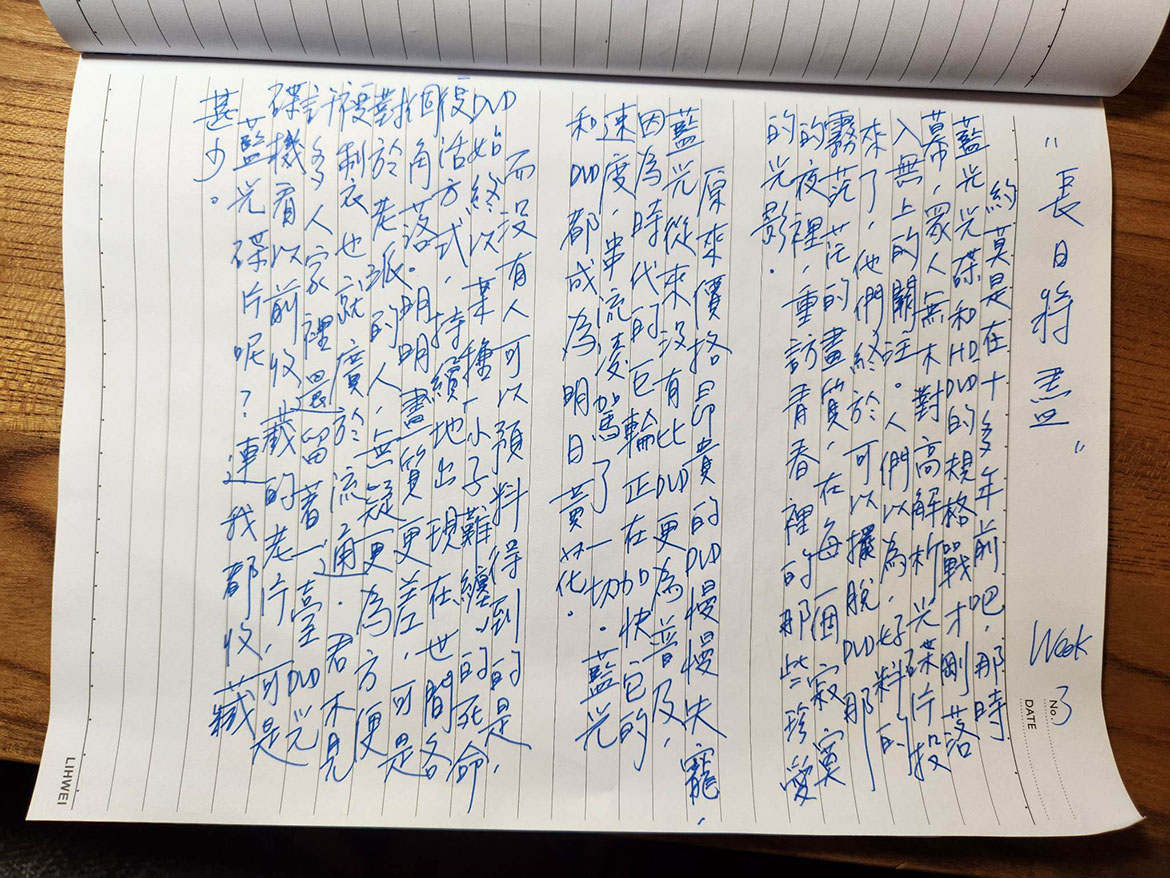 "長日將盡"
Week 3
No.
DATE
約莫是在十多年前吧，那時
藍光光碟和HD DVD的規格戰才剛落
幕，眾人無不對高解析光碟片投
入無上的關注。人們以為，好料的
來了，他們終於可以擺脫DVD那
霧茫茫的畫質，在每一個寂寞
的夜裡，重訪青春裡的那些珍愛
的光影。
原來價格昂貴的DVD慢慢失寵，
藍光從來沒有比DVD更為普及，
因為時代的巨輪正在加快它的
速度，串流凌駕了一切。藍光
和DVD都成為明日黃花。
而沒有人可以預料得到的是，
DVD始終以某種「小子難纏」的死命
復活方式，持續地出現在世間各
個角落。明明畫質更差，可是
對於老派的人，無疑更為方便
複製也就廣於流通。君不見
許多人家裡還留著一臺DVD光
碟機看以前收藏的老片，可是
藍光碟片呢？連我都收藏
甚少。
LIHWEI